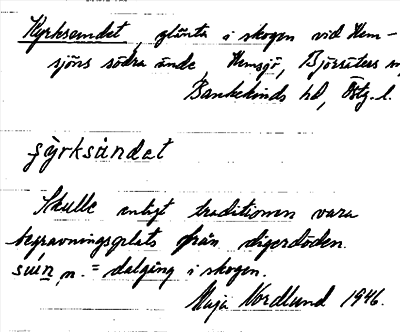 Kyrksundet, glänta i skogen vid Hem-
sjöns södra ände, Hemsjö, Björsäters
Bankekinds hd, Östg. l.
Skulle enligt traditionen vara
begravningsplats från digerdöden.
n. = dalgång i skogen.
Maja Nordlund 1946.